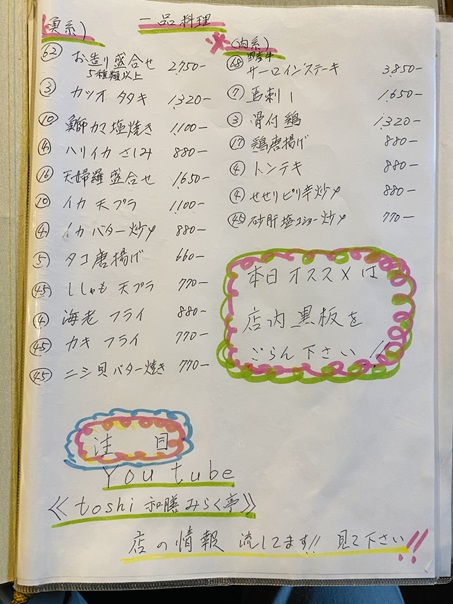 一品料理
魚系)
62 お造り盛合せ 2,750-
5種類以上
3 カツオタタキ 1,320-
10 鰤カマ塩焼き 1,100-
4 ハリイカさしみ 880-
16 天婦羅盛合せ 1,650-
10 イカ天プラ 1,100-
4 イカバター炒メ 880-
5 タコ唐揚げ 660-
45 ししゃも天プラ 770-
4 海老フライ 880-
45 カキフライ 770-
45 ニシ貝バター焼き 770-
肉系)
サーロインステーキ 3,850-
7 馬刺し 1,650-
3 骨付鶏 1,320-
17 鶏唐揚げ 880-
4 トンテキ 880-
4 せせりピリ辛炒メ 880-
45 砂肝塩コショー炒メ 770-
本日オススメは
店内黒板を
ごらん下さい!!
注目
You tube
《toshi 和膳みらく亭》
店の情報 流してます!! 見て下さい!!